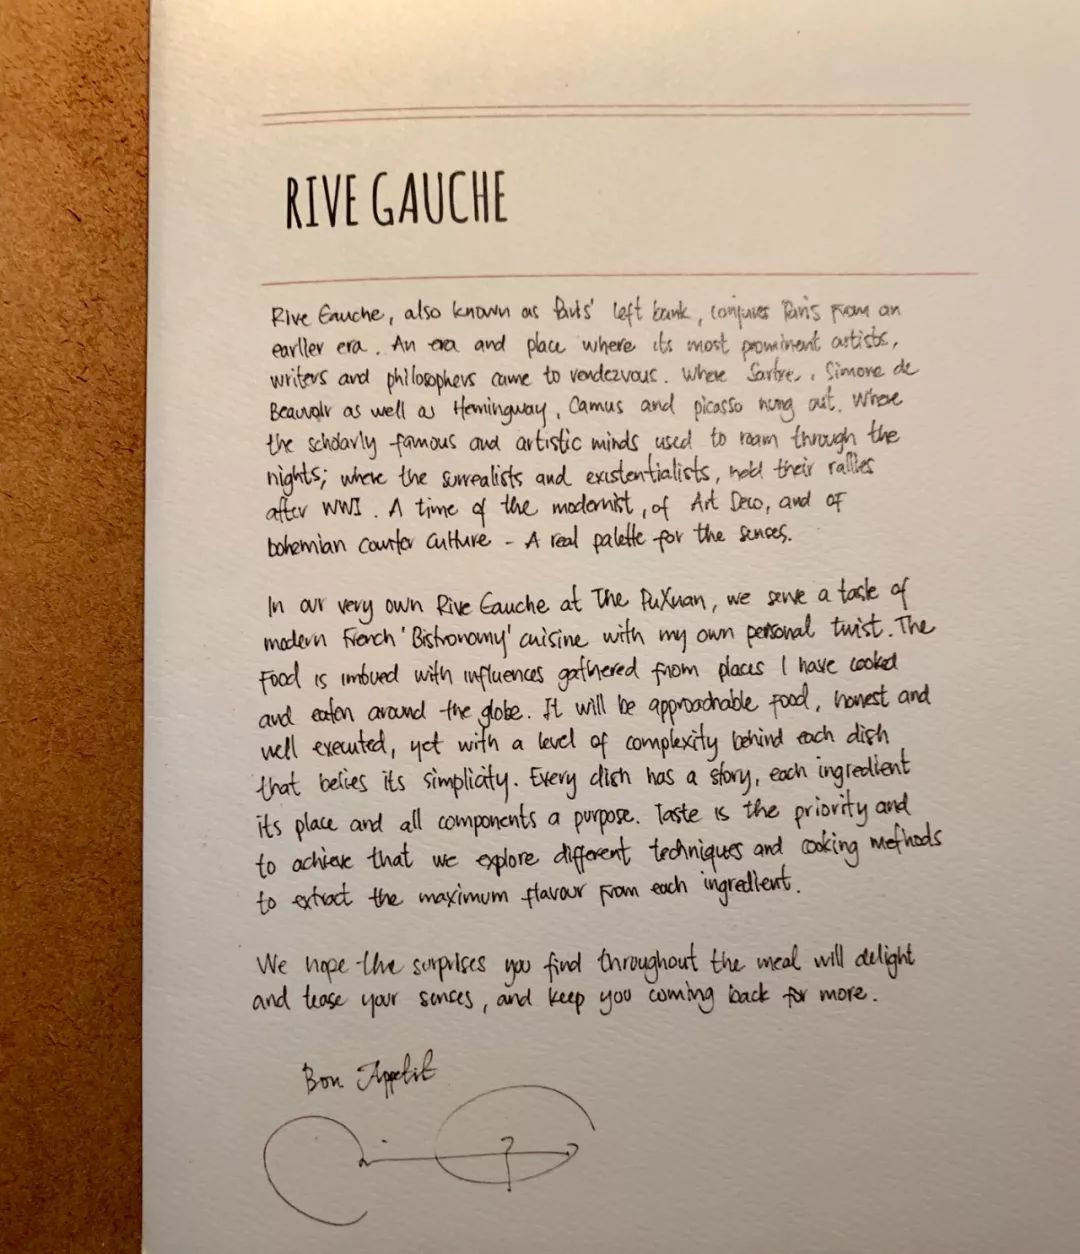 RIVE GAUCHE
Rive Gauche, also known as Paris' left bank, conjures Paris from an
earlier era. An era and place where its most prominent artists,
writers and philosophers came to rendezvous. Where Sartre, Simone de
Beauvoir as well as Hemingway, Camus and picasso hung out. Where
the scholarly famous and artistic minds used to roam through the
nights; where the surrealists and existentialists, held their rallies
after WWI. A time of the modernist, of Art Deco, and of
bohemian counter culture - A real palette for the senses.
In our very own Rive Gauche at The PuXuan, we serve a taste of
modern French 'Bistronomy' cuisine with my own personal twist. The
food is imbued with influences gathered from places I have cooked
and eaten around the globe. It will be approachable food, honest and
well executed, yet with a level of complexity behind each dish
that belies its simplicity. Every dish has a story, each ingredient
its place and all components a purpose. Taste is the priority and
to achieve that we explore different techniques and cooking methods
to extract the maximum flavour from each ingredient.
We hope the surprises you find throughout the meal will delight
and tease your senses, and keep you coming back for more.
Bon Appetit